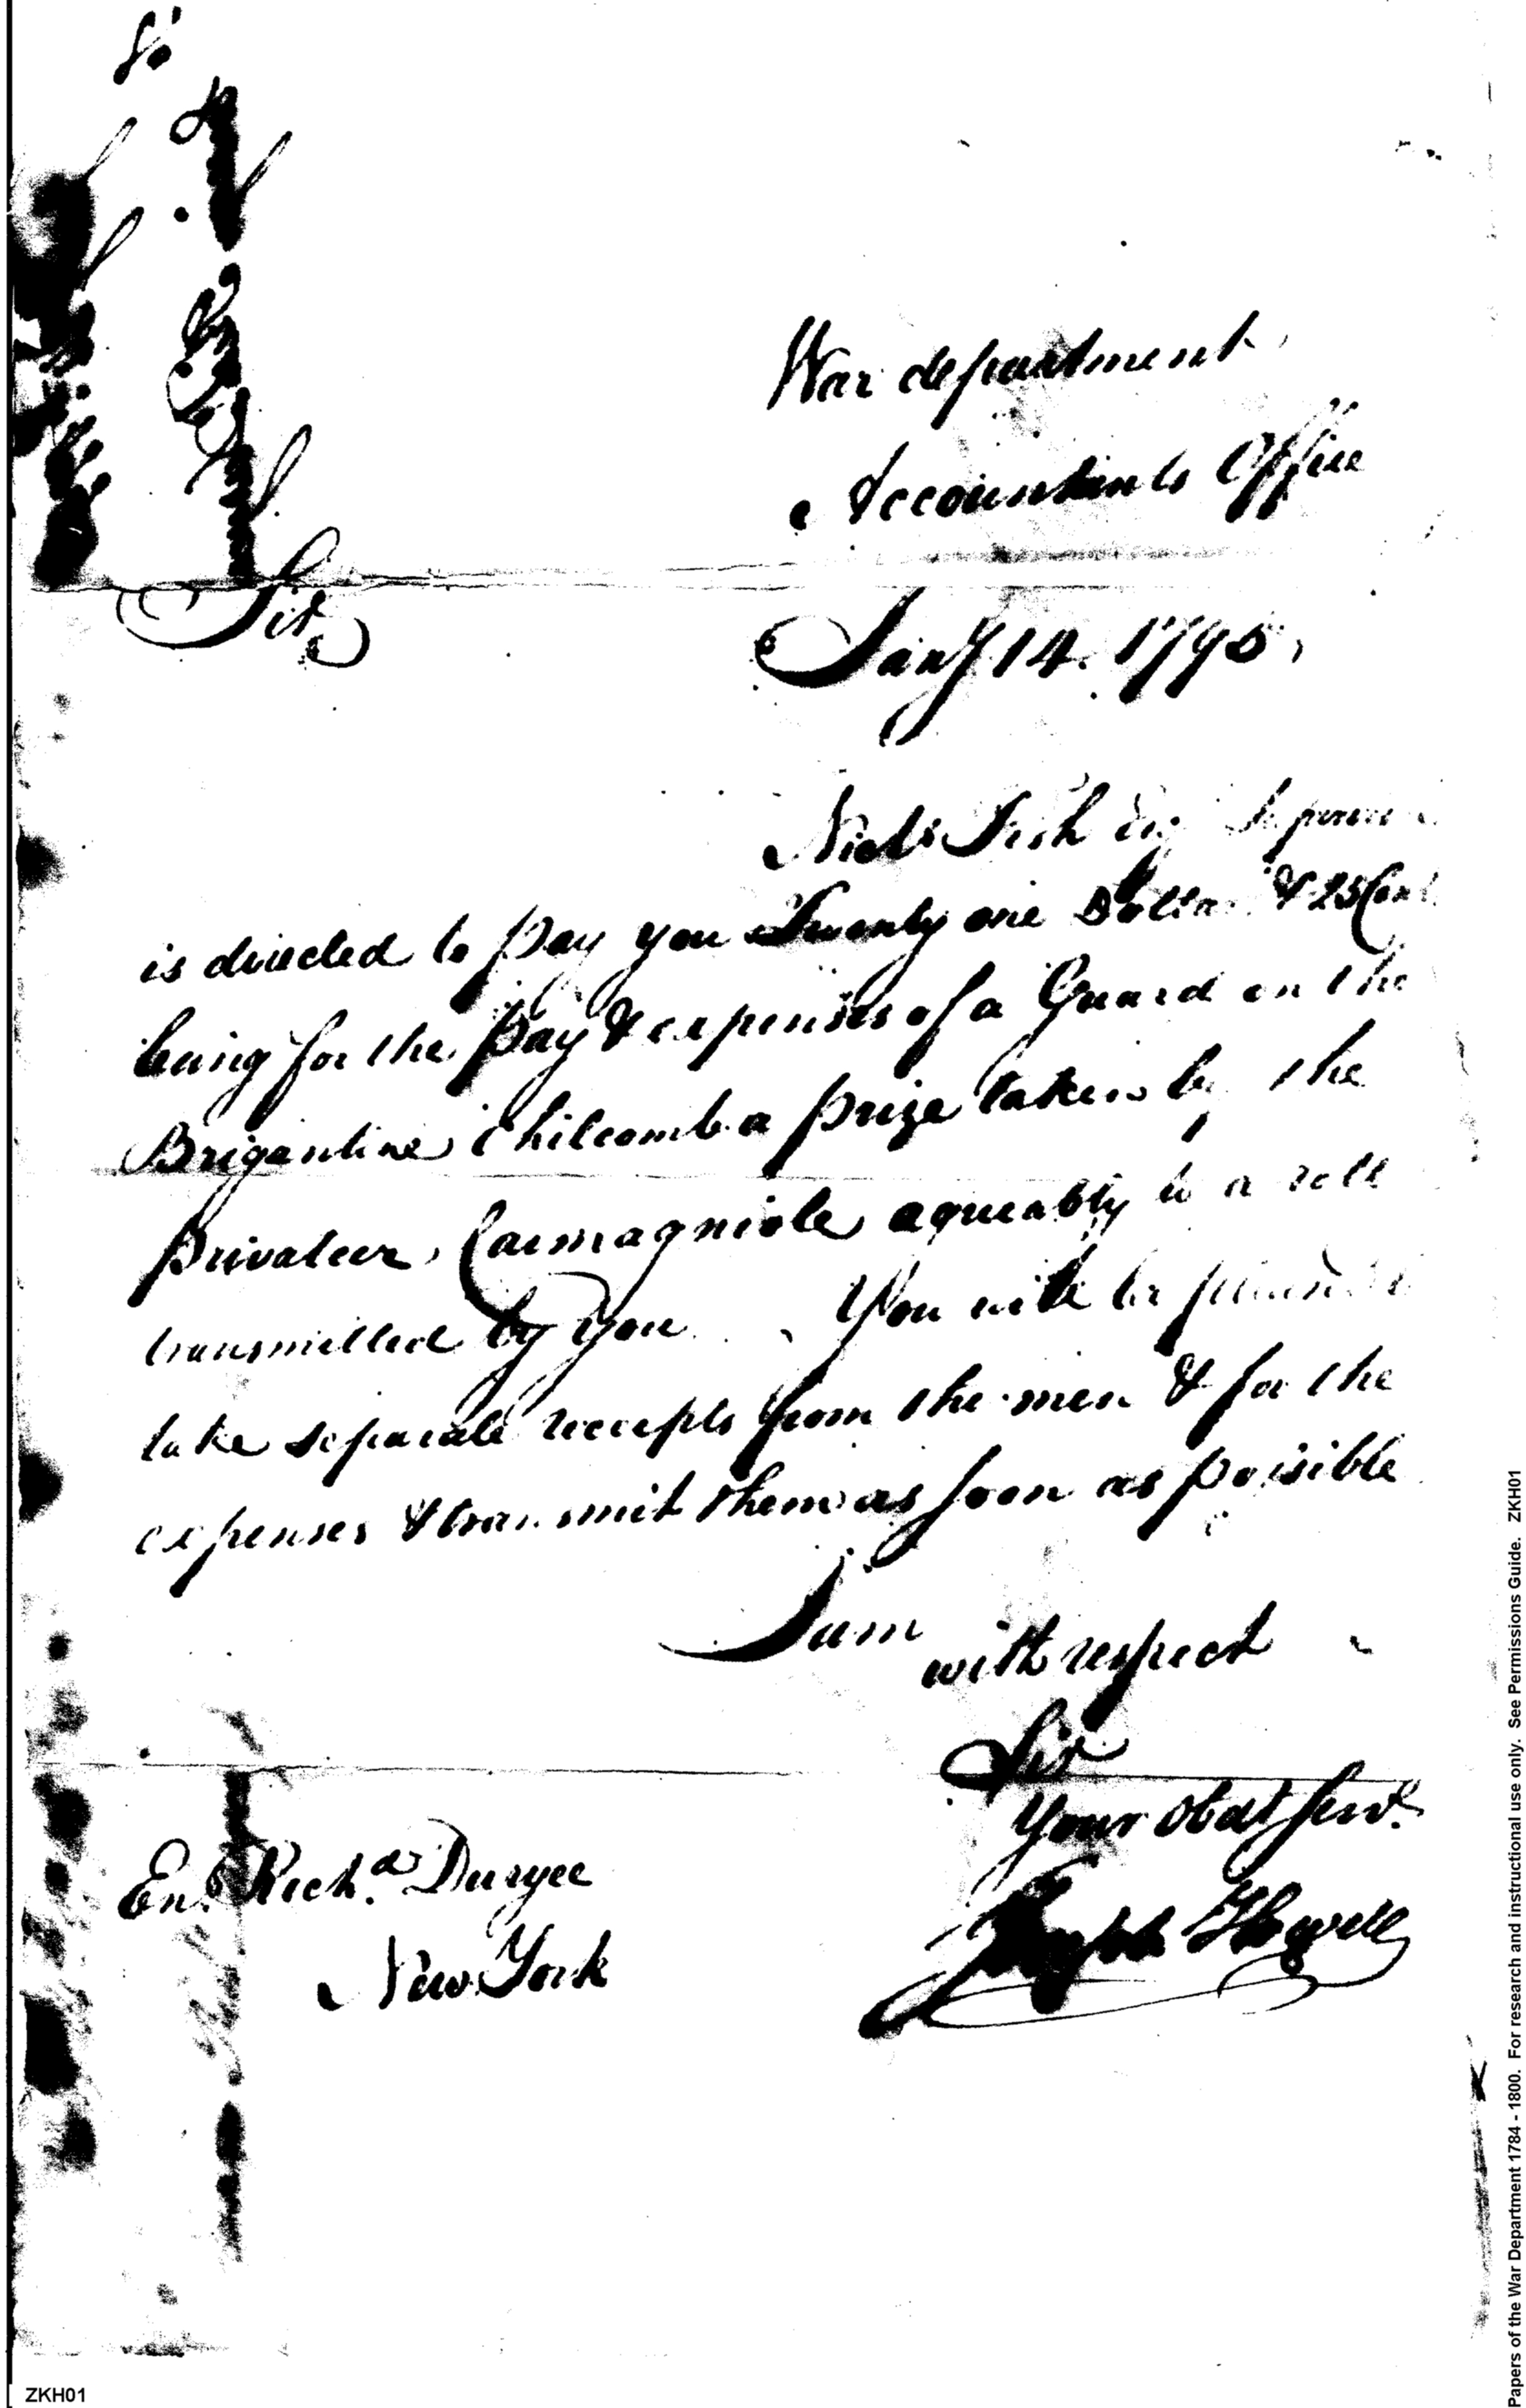 War department
Accountants Office
Sir,
Jany 14. 1795,
Nichs Fish Esq
is directed to pay you Twenty one Dollars & 25 Cents
being for the Pay & expenses of a Guard on the
Brigantine Chilcomb a prize taken by the
Privateer, Carmagniole agreeably to a roll
transmitted by you. You will be pleased to
take separate receipts from the men & for the
expenses & transmit them as soon as possible
I am
with respect
Sir
Your obdt servt.
Joseph Howell
Ens. Richd. Duryee
New York
ZKH01
Papers of the War Department 1784 - 1800. For research and instructional use only. See Permissions Guide. ZKH01